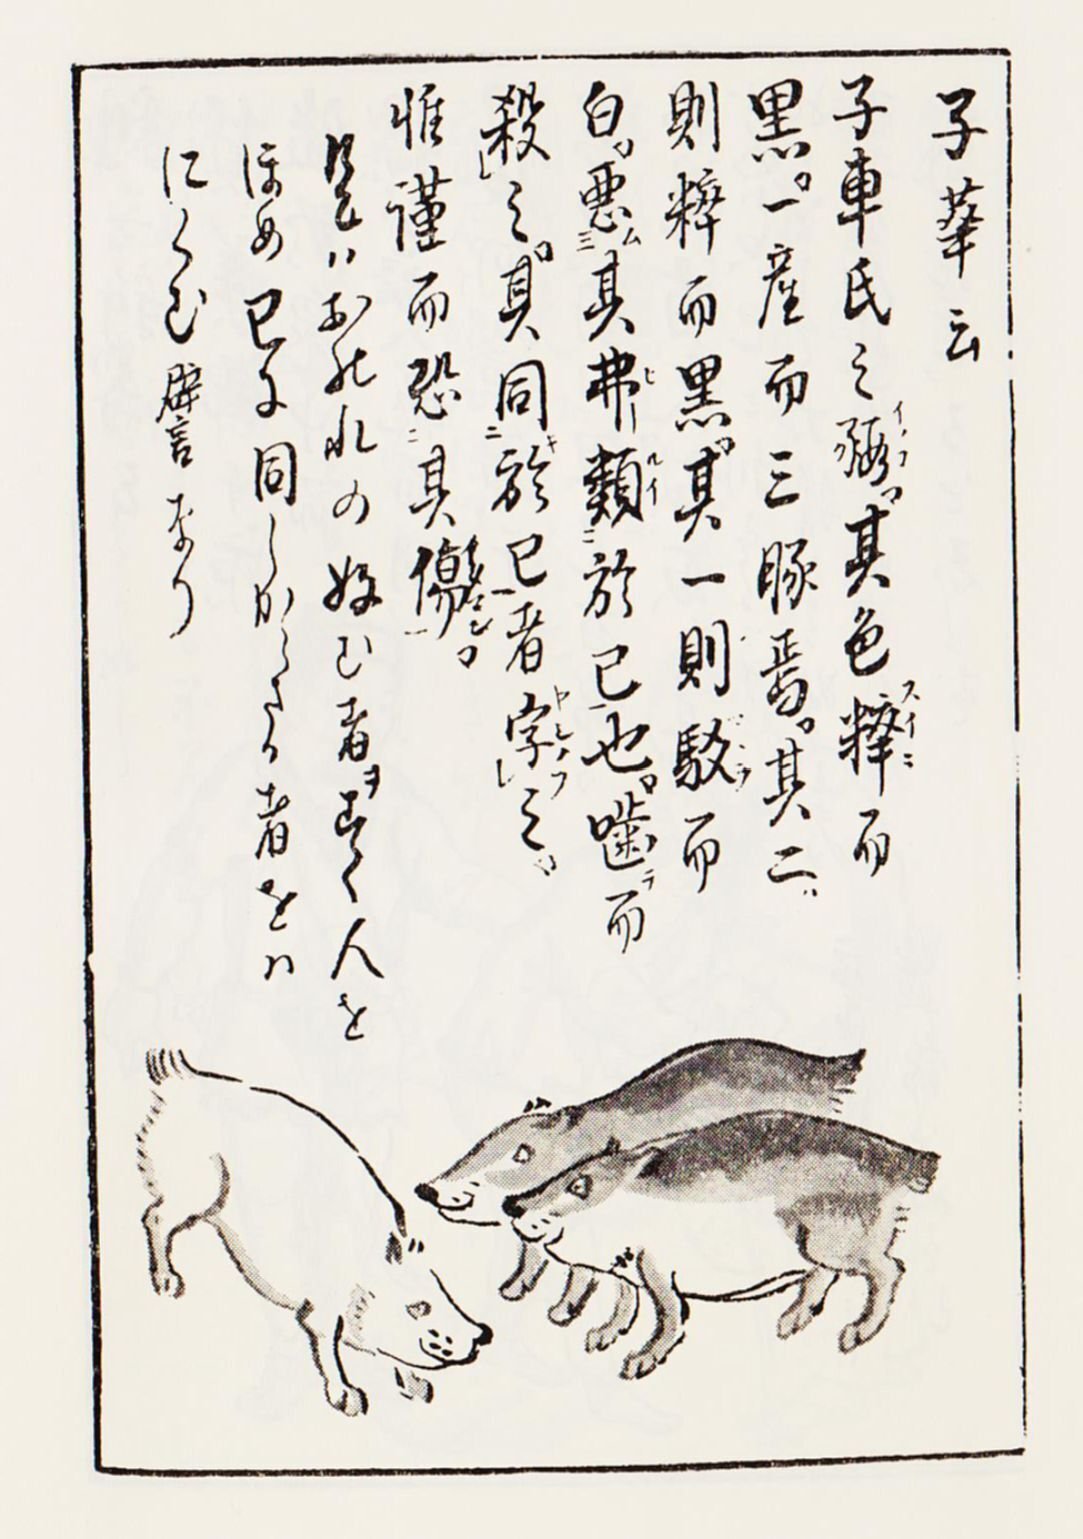 子華云
子車氏之豭。其色粹而
黒。一産而三豚焉。其二
則粹而黒。其一則駁而
白。悪其弗類於己也。噛而
殺之。其同於己者字之。
惟謹而恐其傷。
是ハおのれの好む者ヲ云て人を
ほめ己に同しからさる者をハ
にくむ譬言なり